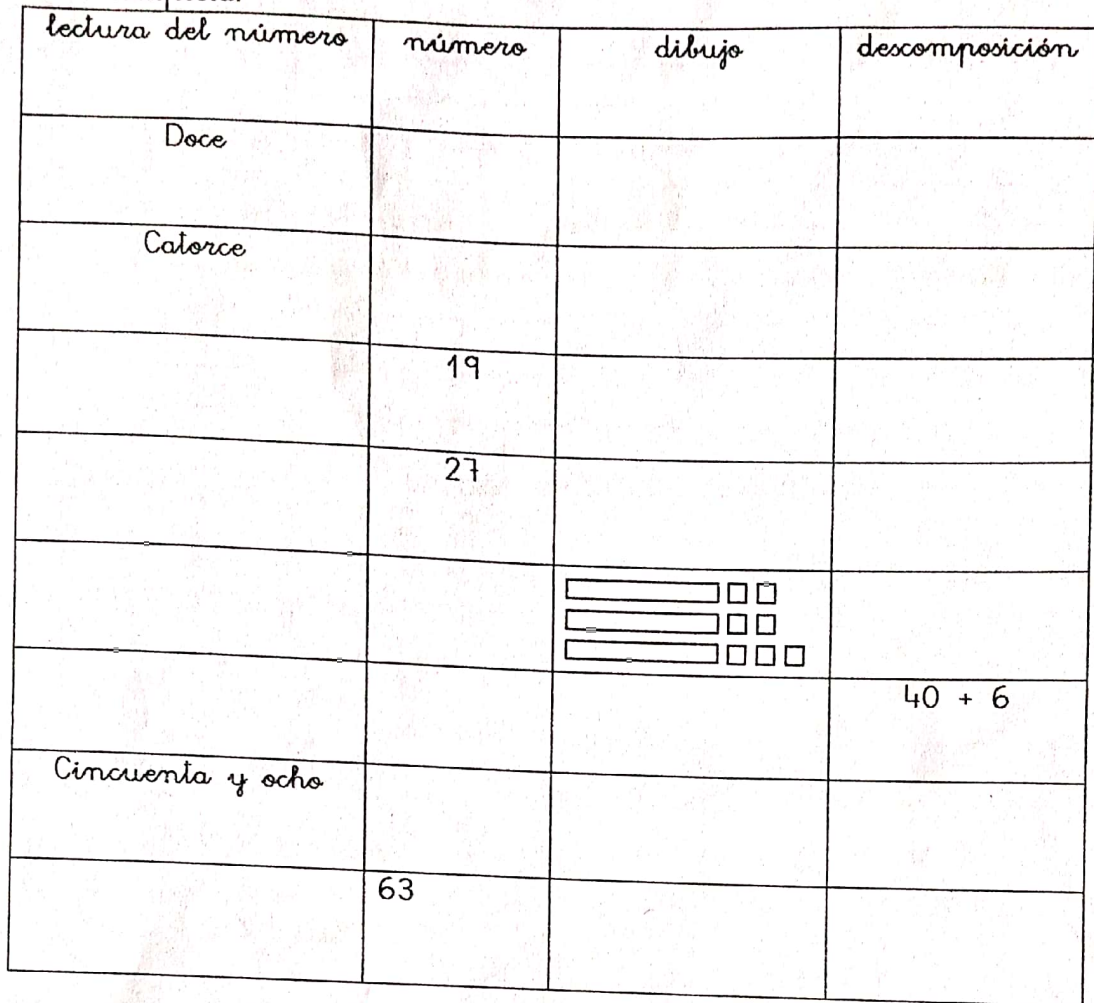 lectura del número número dibujo descomposición
Doce
Catorce
19
27
40 + 6
Cincuenta y ocho
63